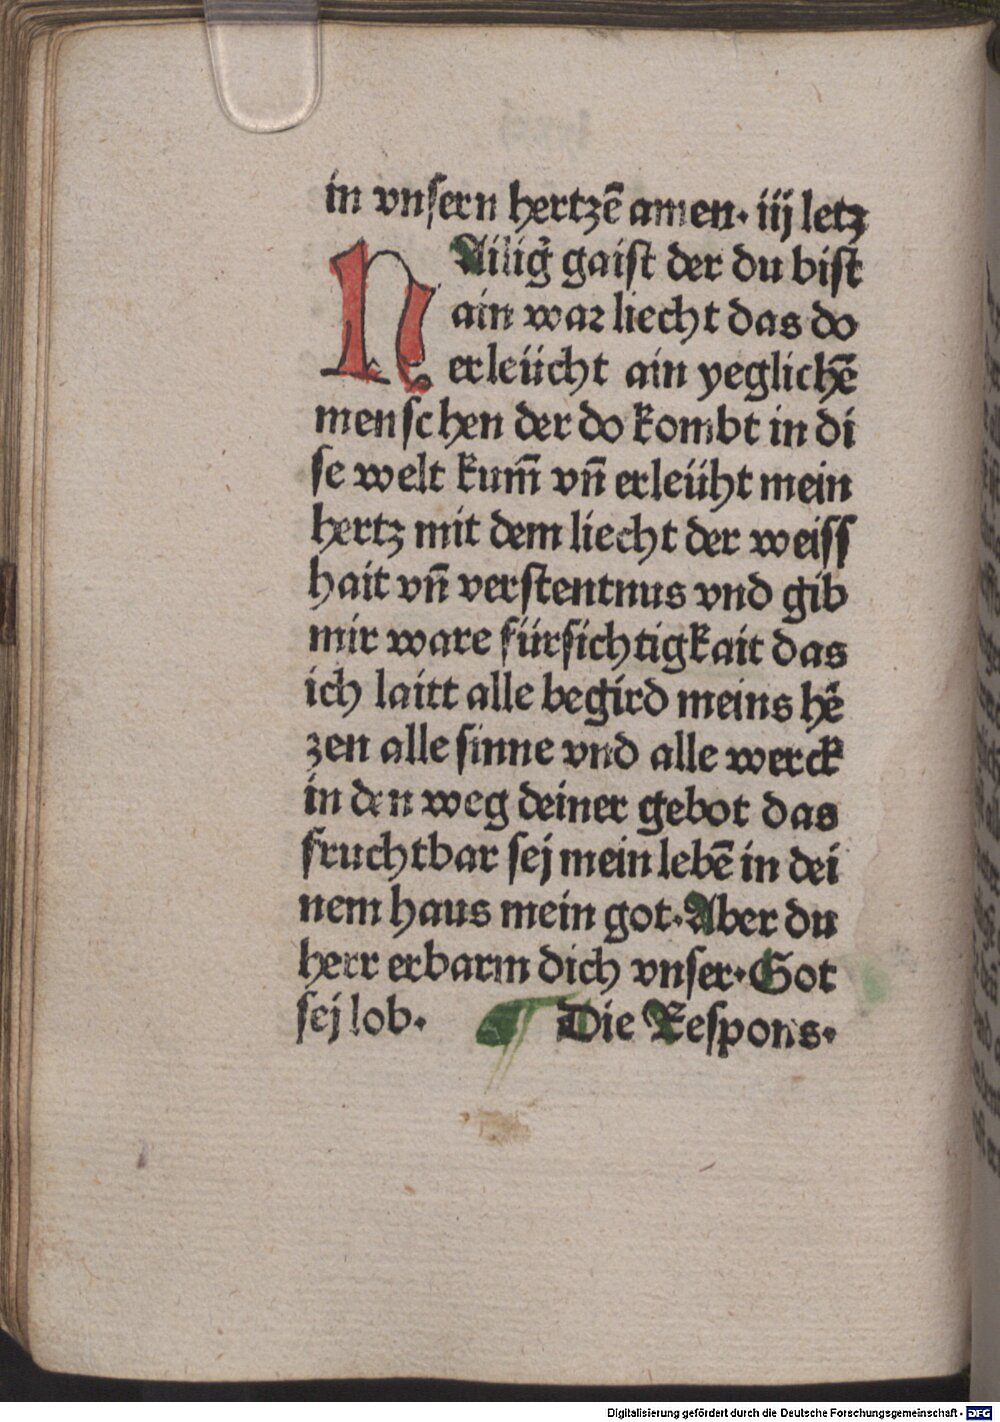 in vnſern hertzē amen· iij letz
HAilig̉ gaiſt der du biſt
ain waꝛ liecht das do
erleücht ain yeglichē
menſchen der do kombt in di
ſe welt kum̄ vn̄ erleüht mein
hertz mit dem liecht der weiſſ
hait vn̄ verſtentnus vnd gib
mir ware fürſichtigkait das
ich laitt alle begird meins hē
zen alle ſinne vnd alle werck
in den weg deiner gebot das
fruchtbar ſej mein lebē in dei
nem haus mein got·Aber du
herr erbarm dich vnſer·Got
ſej lob· Die Reſpons·
Digitalisierung gefördert durch die Deutsche Forschungsgemeinschaft - DFG